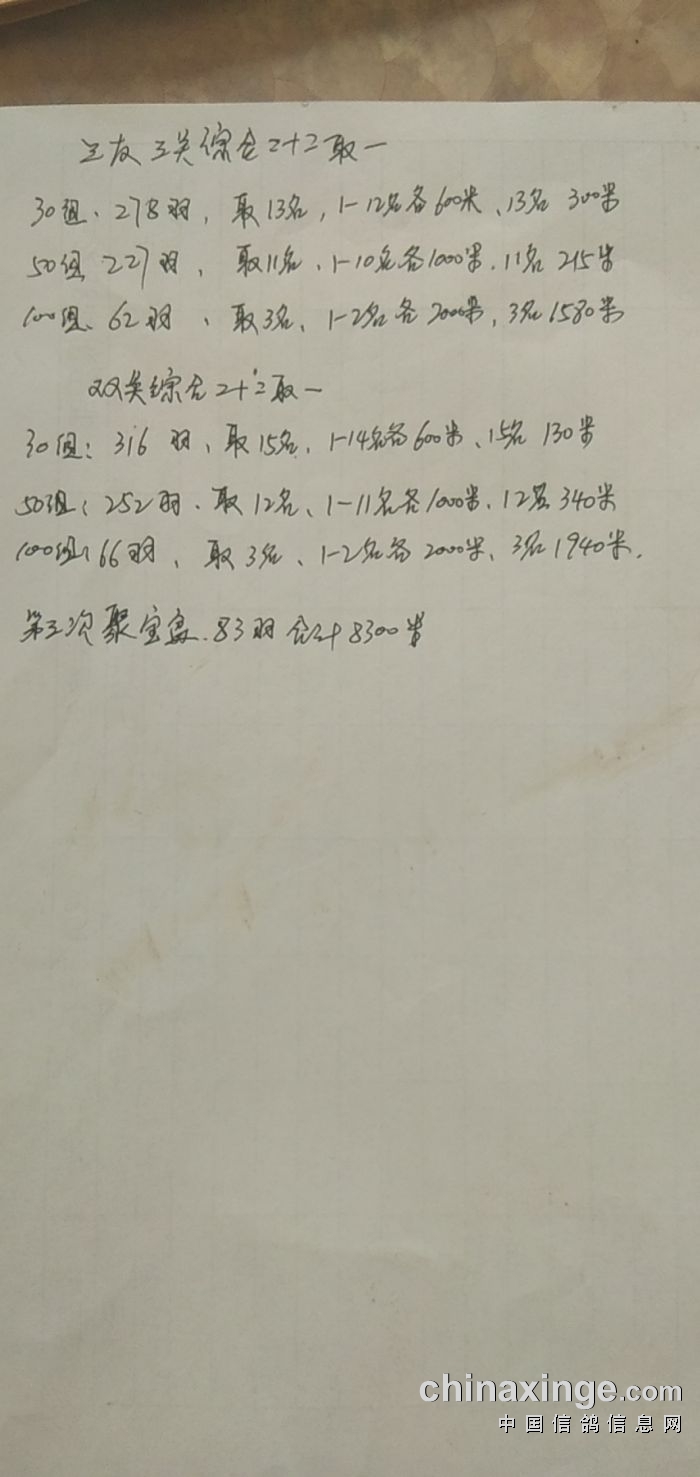 三关综合2+2取一
30组、278羽，取13名，1-12名各600米、13名 300米
50组 227羽、取11名、1-10名各1000米、11名 215米
100组、62羽、取3名、1-2名各2000米，3名1580米
双关综合2+2取一
30组：316羽、取15名、1-14名各600米、15名 130米
50组：252羽、取12名、1-11名各1000米、12名340米
100组：66羽、取3名、1-2名各2000米、3名1940米.
第三次聚宝盆.83羽合计8300米
chinaxinge.com
中国信鸽信息网